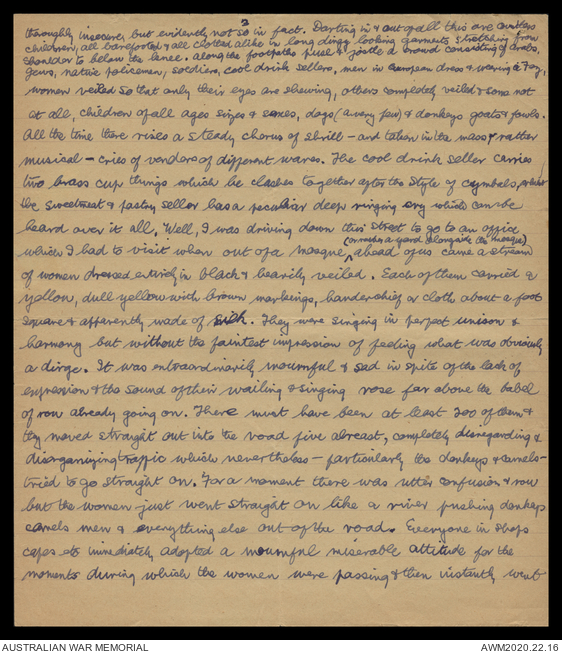 2
thoroughly insecure, but evidently not so in fact. Darting in & out of all this are countless
children, all barefooted & all clothed alike in long dingy looking garments stretching from
shoulder to below the knee. Along the footpaths push & jostle a crowd consisting of arabs,
Jews, native policemen, soldiers, cool drink sellers, men in european dress & wearing a Fez,
women veiled so that only their eyes are showing, others completely veiled & some not
at all, children of all ages sizes & sexes, dogs (a very few) & donkeys goats & fowls.
All the time there rises a steady chorus of shrill - and taken in the mass, rather
musical - cries of vendors of different wares. The cool drink seller carries
two brass cup things which he clashes together after the style of cymbals, whilst
the sweetmeat & pastry seller has a peculiar deep ringing cry which can be
heard over it all. Well, I was driving down this street to go to an office
(or rather a yard alongside the mosque)
which I had to visit when out of a mosque, ahead of us came a stream
of women dressed entirely in black & heavily veiled. Each of them carried a
yellow, dull yellow with brown markings, handerchief or cloth about a foot
square & apparently made of silk. They were singing in perfect unison &
harmony but without the faintest impression of feeling what was obviously
a dirge. It was extraordinarily mournful & sad in spite of the lack of
expression & the sound of their wailing & singing rose far above the babel
of row already going on. There must have been at least 200 of them &
they moved straight out into the road five abreast, completely disregarding &
disorganizing traffic which nevertheless - particularly the donkeys & camels -
tried to go straight on. For a moment there was utter confusion & row
but the women just went straight on like a river pushing donkeys
camels men & everything else out of the road. Everyone in shops
cafes etc immediately adopted a mournful miserable attitude for the
moments during which the women were passing & then instantly went
AUSTRALIAN WAR MEMORIAL
AWM2020.22.16